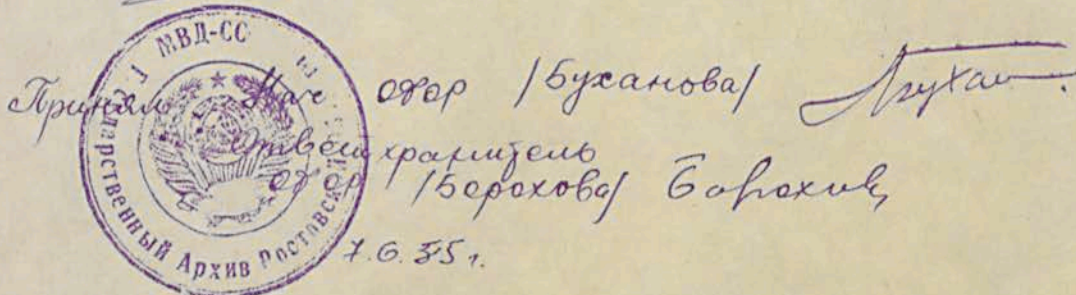 МВД-СС
Государственный Архив Ростовской
Принял Нач отдер /Буханова/ Бухан
Ответ хранитель
отдер /Борохова/ Борохов
7.6.55 г.